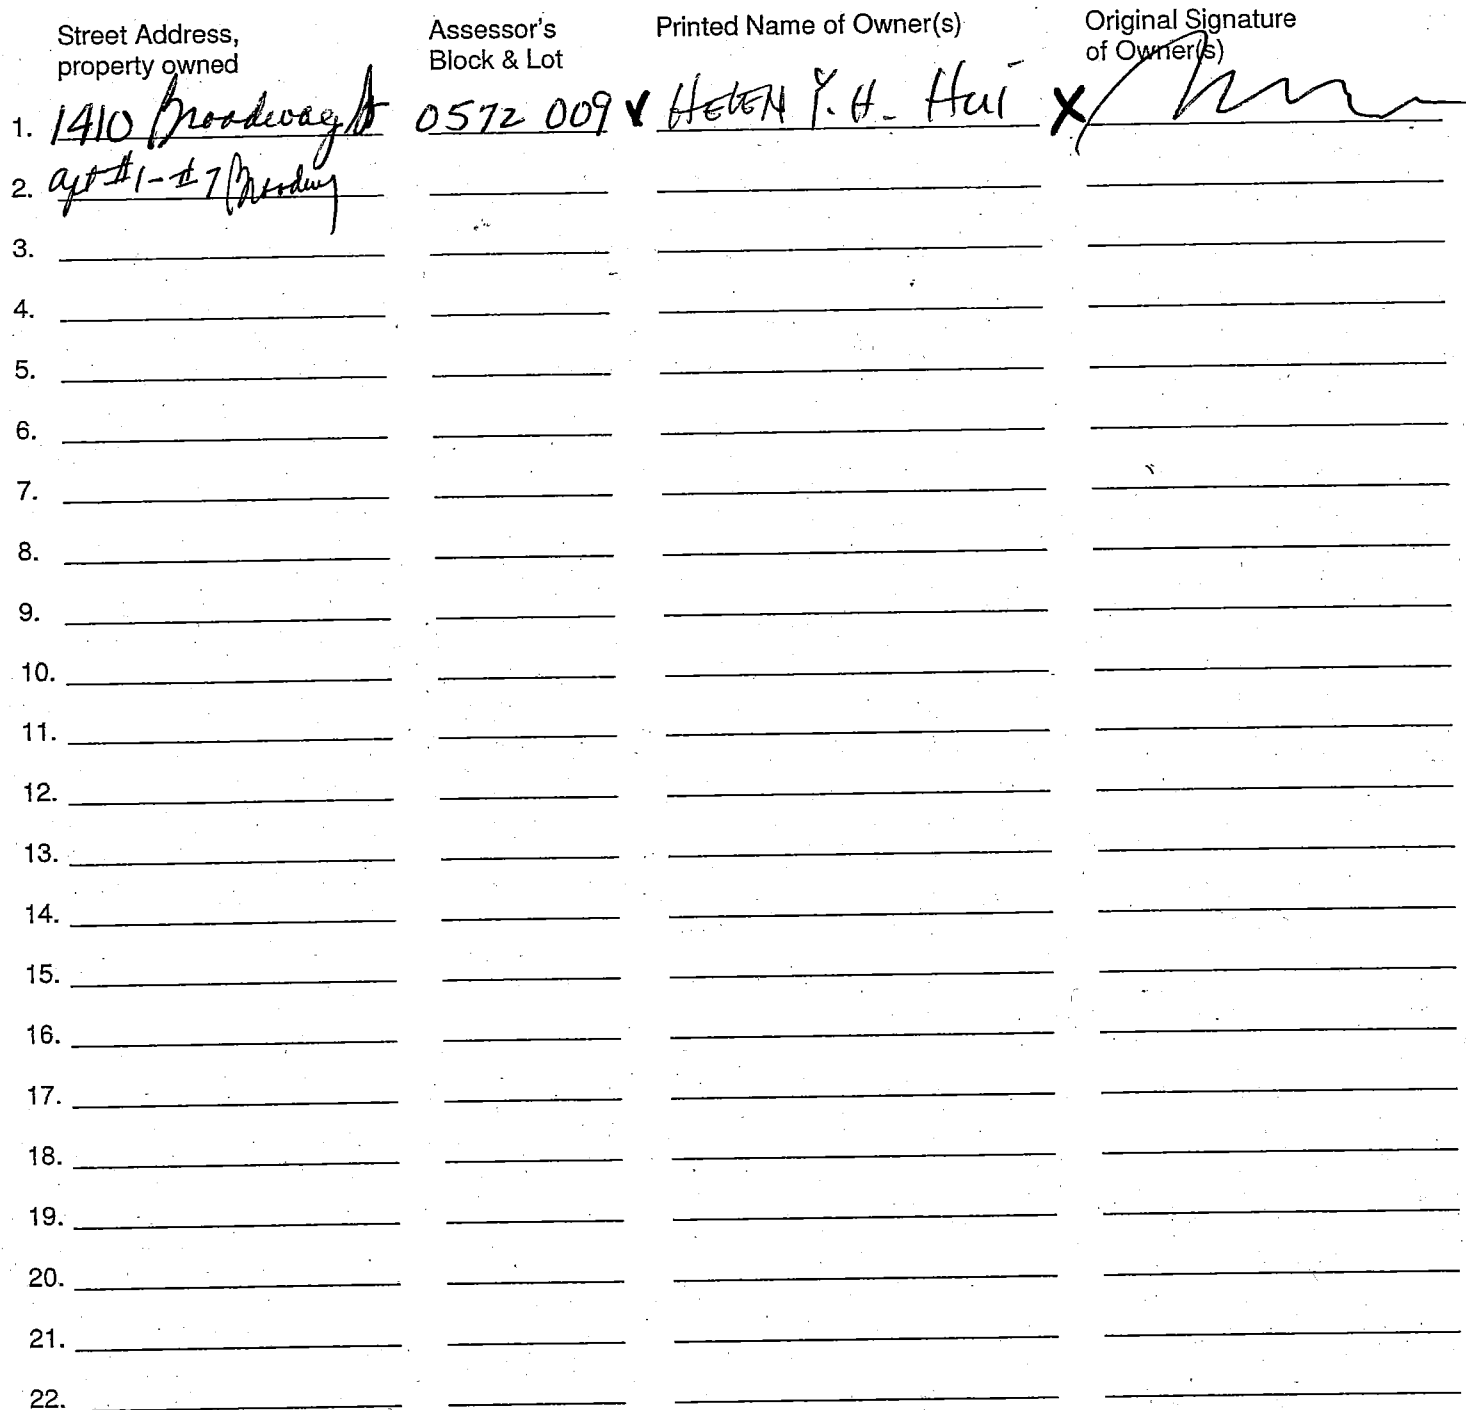 Street Address, property owned Assessor's Block & Lot Printed Name of Owner(s) Original Signature of Owner(s)
1. 1410 Broadway St 0572 009 HELEN Y. H. Hui X
2. apt #1-#7 Broadway
3.
4.
5.
6.
7.
8.
9.
10.
11.
12.
13.
14.
15.
16.
17.
18.
19.
20.
21.
22.